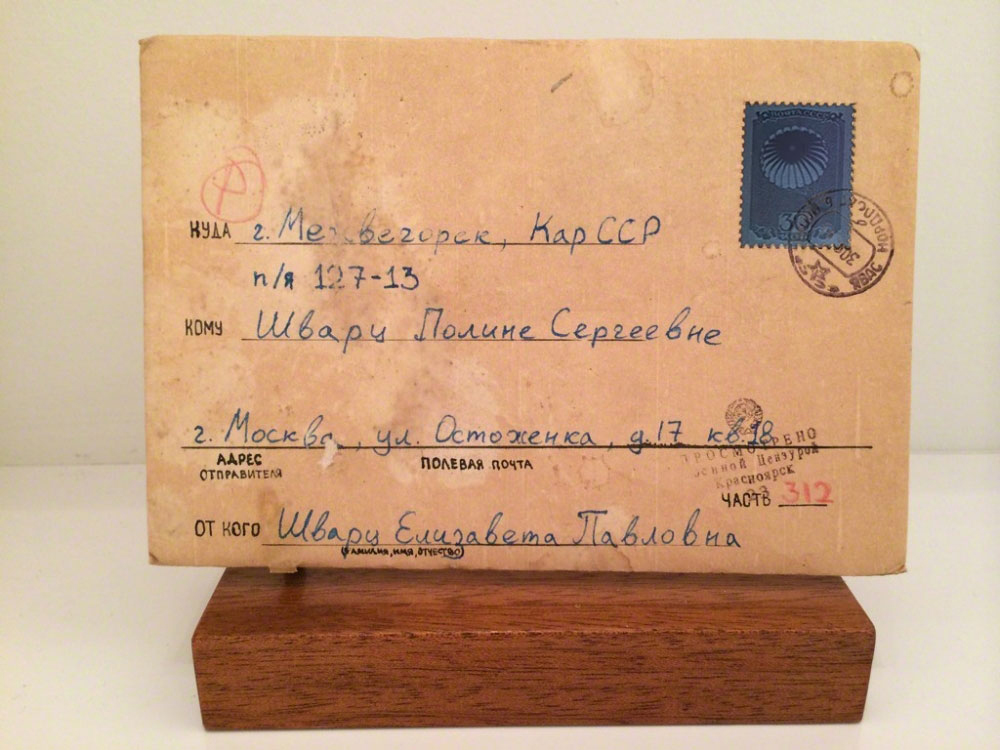 ПОЧТА СССР
30
КУДА г. Межвегорск, Кар ССР
п/я 127-13
КОМУ Шварц Полине Сергеевне
г. Москва, ул. Остоженка, д.17 кв.18
АДРЕС ОТПРАВИТЕЛЯ
ПОЛЕВАЯ ПОЧТА
ПРОСМОТРЕНО
Военной Цензурой
Красноярск
ЧАСТЬ 312
ОТ КОГО Шварц Елизавета Павловна
(ФАМИЛИЯ, ИМЯ, ОТЧЕСТВО)